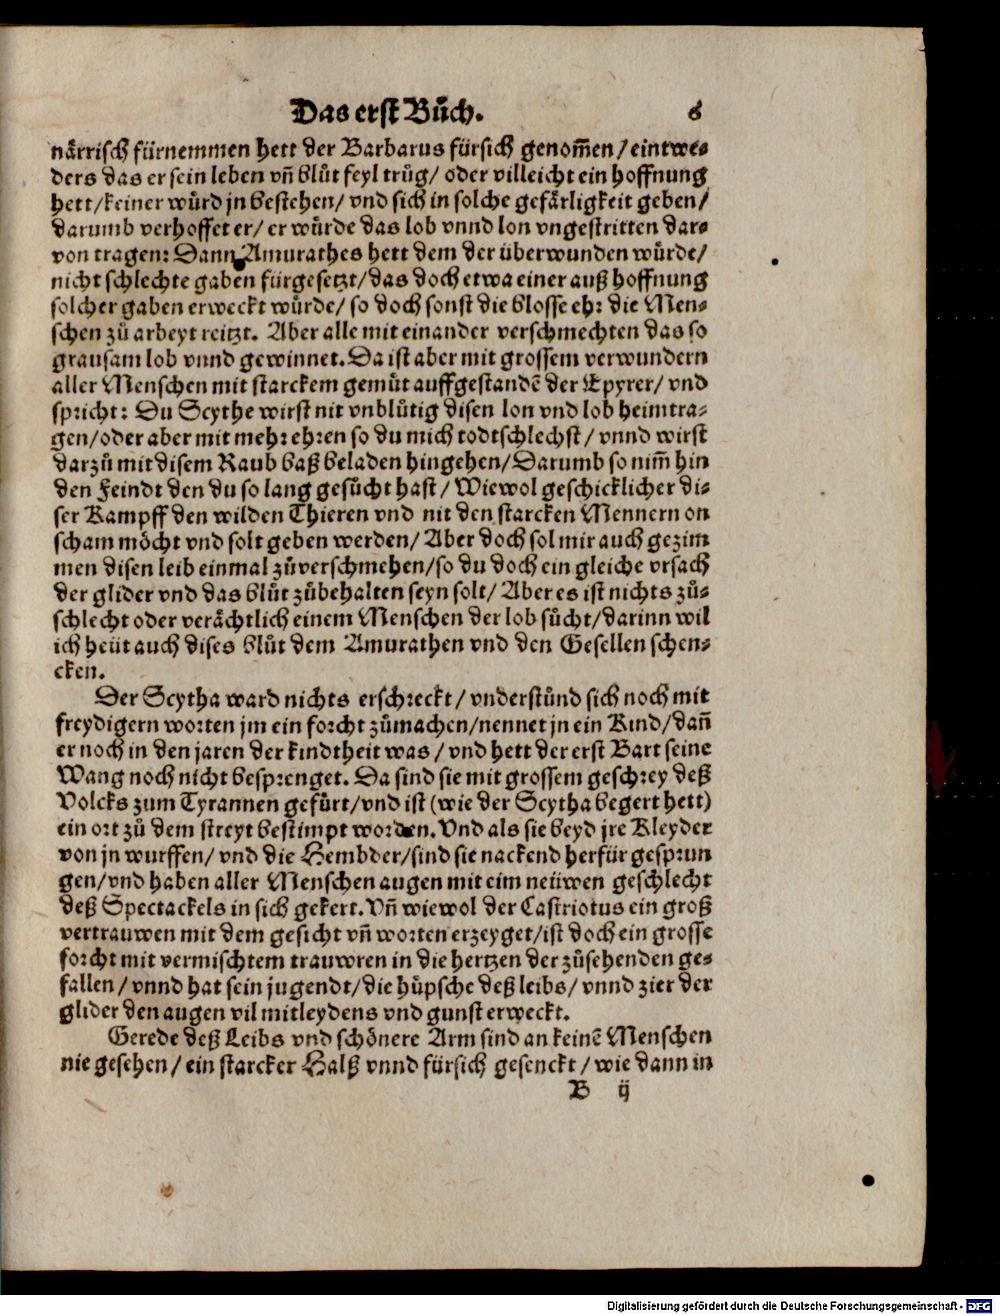 Das erst Bůch. 6
närrisch fürnemmen hett der Barbarus fürsich genom̃en / eintwe-
ders das er sein leben vñ blůt feyl trůg / oder villeicht ein hoffnung
hett / keiner würd jn bestehen / vnd sich in solche gefärligkeit geben /
darumb verhoffet er / er würde das lob vnnd lon vngestritten dar-
von tragen: Dann Amurathes hett dem der überwunden würde /
nicht schlechte gaben fürgesetzt / das doch etwa einer auß hoffnung
solcher gaben erweckt würde / so doch sonst die blosse ehr die Men-
schen zů arbeyt reitzt. Aber alle mit einander verschmechten das so
grausam lob vnnd gewinnet. Da ist aber mit grossem verwundern
aller Menschen mit starckem gemůt auffgestandē der Epyrer / vnd
spricht: Du Scythe wirst nit vnblůtig disen lon vnd lob heimtra-
gen / oder aber mit mehr ehren so du mich todtschlechst / vnnd wirst
darzů mit disem Raub baß beladen hingehen / Darumb so nim̃ hin
den Feindt den du so lang gesůcht hast / Wiewol geschicklicher di-
ser Kampff den wilden Thieren vnd nit den starcken Mennern on
scham möcht vnd solt geben werden / Aber doch sol mir auch gezim
men disen leib einmal zůverschmehen / so du doch ein gleiche vrsach
der glider vnd das blůt zůbehalten seyn solt / Aber es ist nichts zů-
schlecht oder verächtlich einem Menschen der lob sůcht / darinn wil
ich heüt auch dises blůt dem Amurathen vnd den Gesellen schen-
cken.
Der Scytha ward nichts erschreckt / vnderstůnd sich noch mit
freydigern worten jm ein forcht zůmachen / nennet jn ein Kind / dañ
er noch in den jaren der kindtheit was / vnd hett der erst Bart seine
Wang noch nicht besprenget. Da sind sie mit grossem geschrey deß
Volcks zum Tyrannen gefürt / vnd ist (wie der Scytha begert hett)
ein ort zů dem streyt bestimpt worden. Vnd als sie beyd jre Kleyder
von jn wurffen / vnd die Hembder / sind sie nackend herfür gesprun
gen / vnd haben aller Menschen augen mit eim neüwen geschlecht
deß Spectackels in sich gekert. Vñ wiewol der Castriotus ein groß
vertrauwen mit dem gesicht vñ worten erzeyget / ist doch ein grosse
forcht mit vermischtem trauwren in die hertzen der zůsehenden ge-
fallen / vnnd hat sein jugendt / die hüpsche deß leibs / vnnd zier der
glider den augen vil mitleydens vnd gunst erweckt.
Gerede deß Leibs vnd schönere Arm sind an keinē Menschen
nie gesehen / ein starcker Halß vnnd fürsich gesenckt / wie dann in
B ij
Digitalisierung gefördert durch die Deutsche Forschungsgemeinschaft - DFG